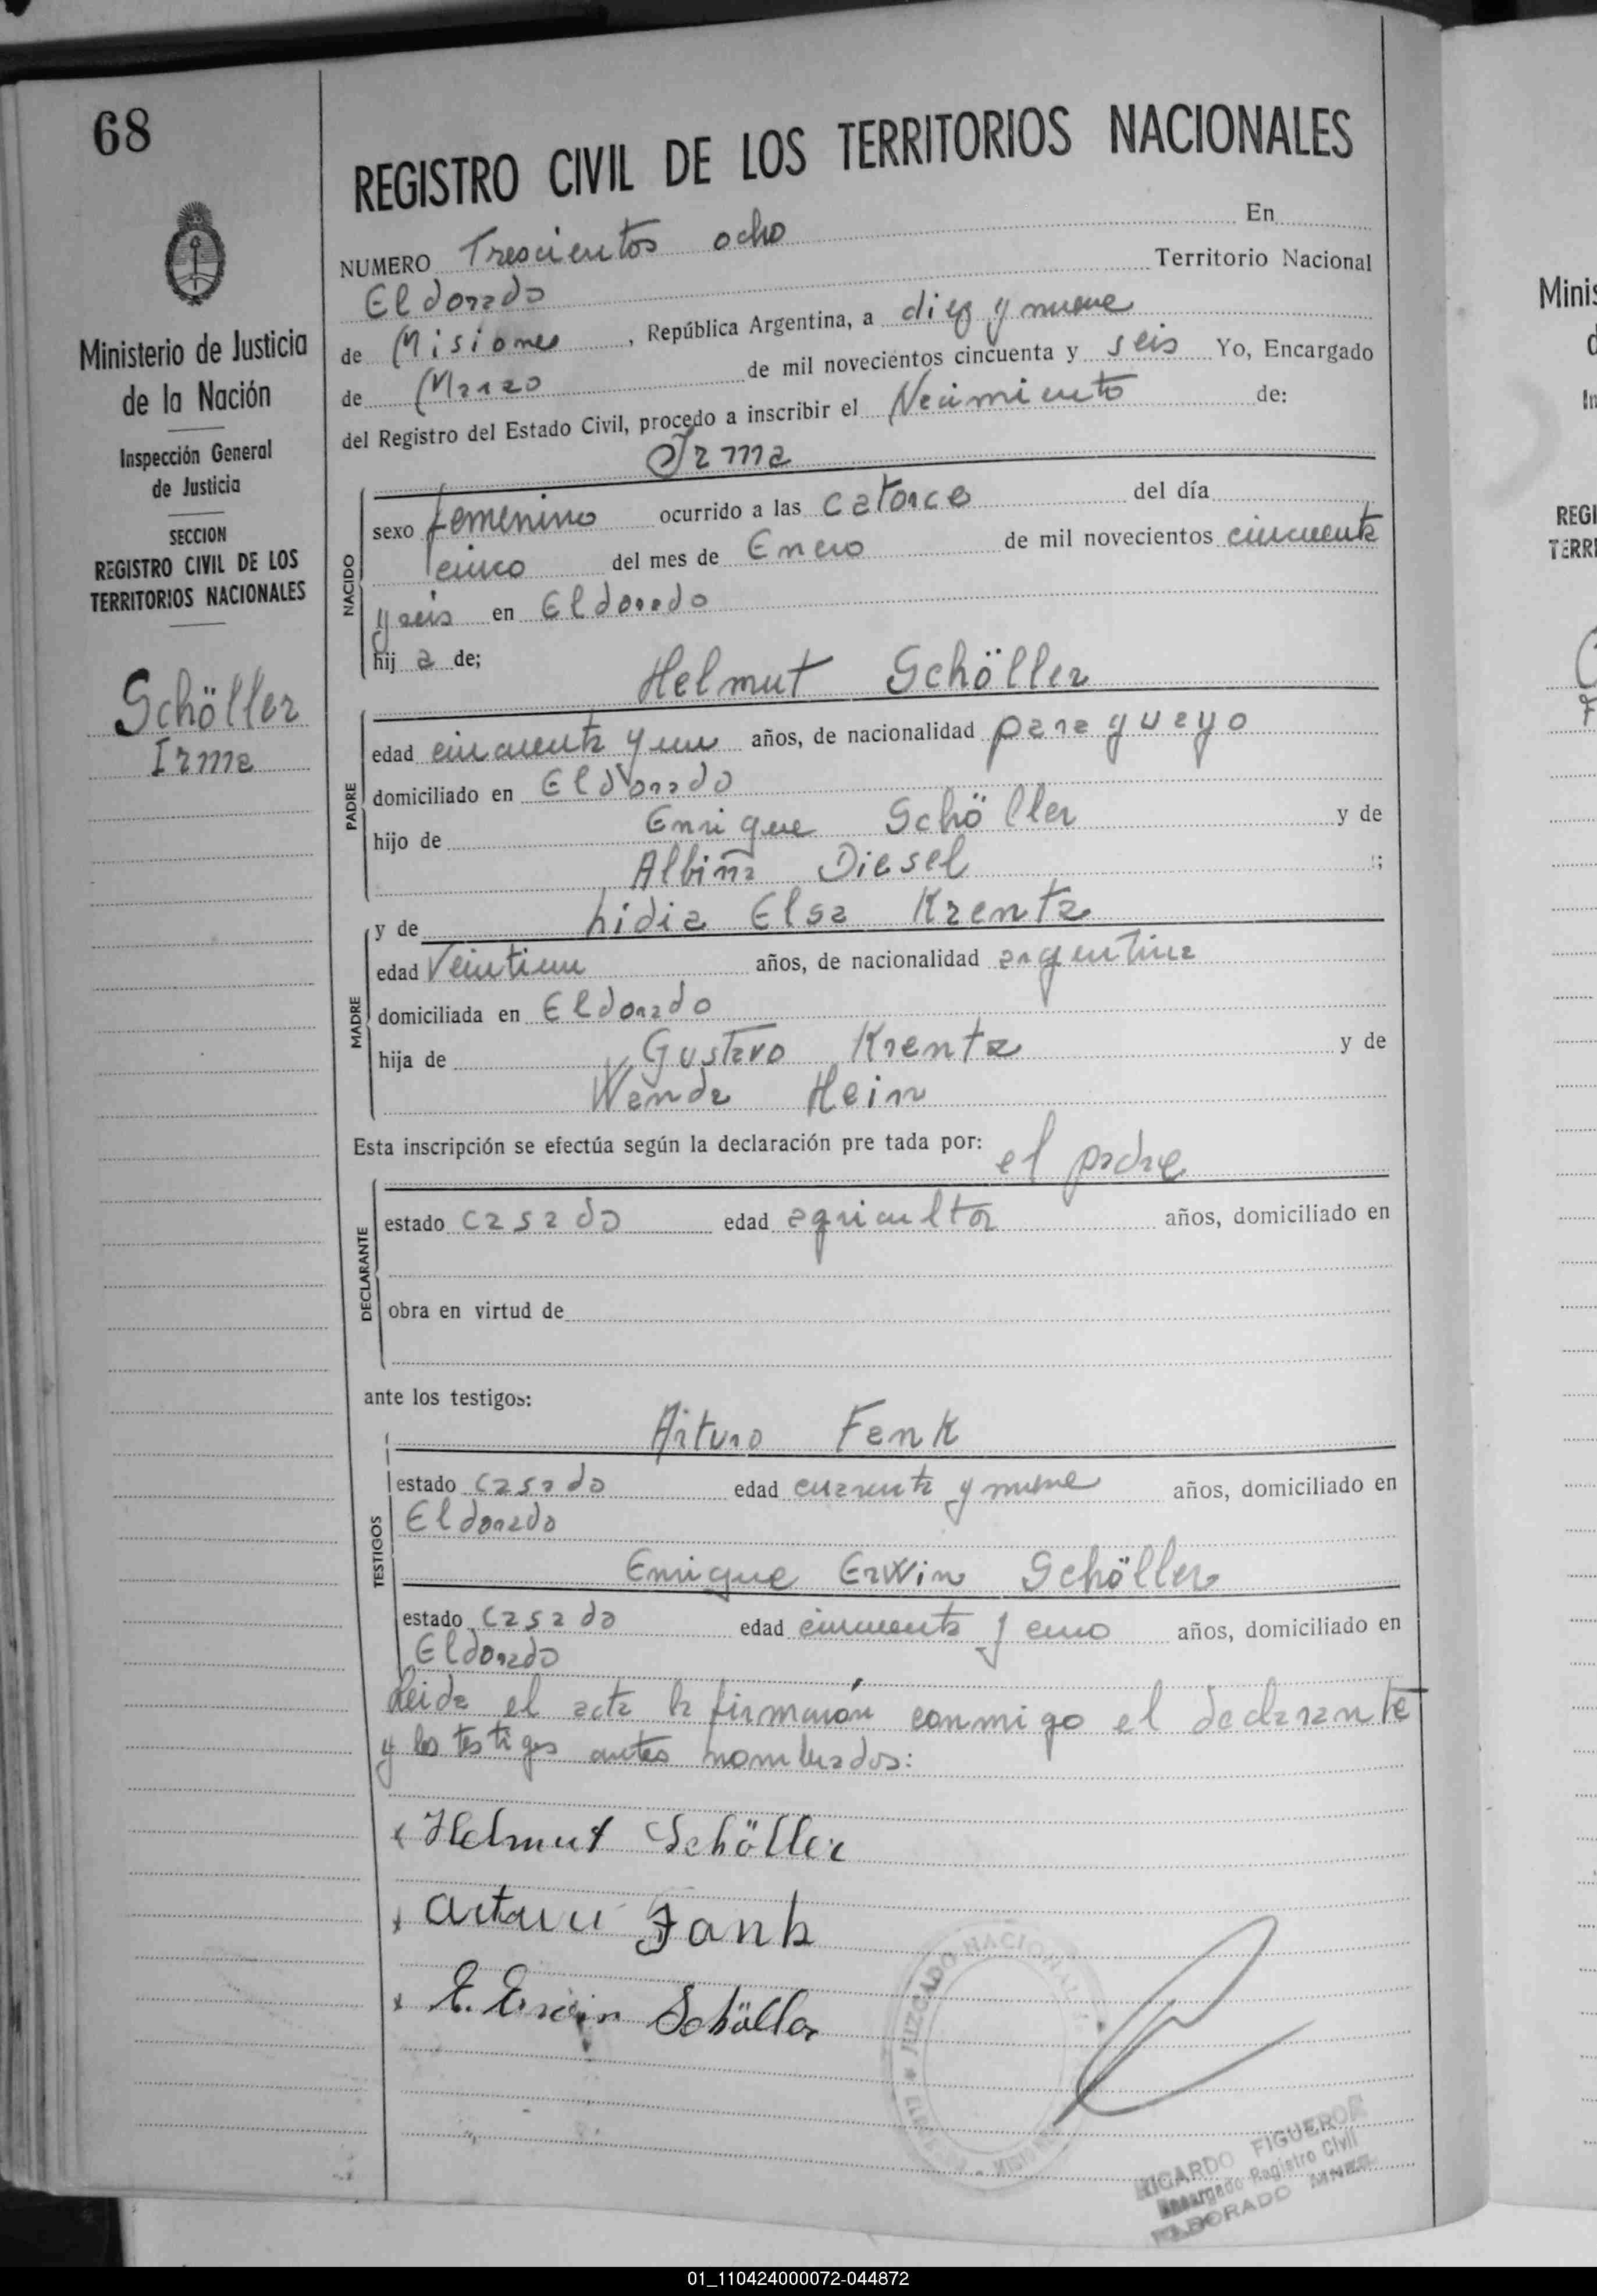 68
REGISTRO CIVIL DE LOS TERRITORIOS NACIONALES
Ministerio de Justicia
de la Nación
Inspección General
de Justicia
SECCION
REGISTRO CIVIL DE LOS
TERRITORIOS NACIONALES
Schöller
Irma
NUMERO Trescientos ocho En
Eldorado Territorio Nacional
de Misiones, República Argentina, a diez y nueve
de Marzo de mil novecientos cincuenta y seis Yo, Encargado
del Registro del Estado Civil, procedo a inscribir el Nacimiento de:
Irma
NACIDO
sexo femenino ocurrido a las catorce del día
cinco del mes de Enero de mil novecientos cincuenta
y seis en Eldorado
hij a de;
Helmut Schöller
PADRE
edad cincuenta y un años, de nacionalidad paraguayo
domiciliado en Eldorado
hijo de Enrique Schöller y de
Albina Diesel ;
y de Lidia Elsa Krentz
MADRE
edad Veintiun años, de nacionalidad argentina
domiciliada en Eldorado
hija de Gustavo Krentz y de
Wanda Hein
Esta inscripción se efectúa según la declaración pre tada por: el padre
DECLARANTE
estado casado edad agricultor años, domiciliado en
obra en virtud de
ante los testigos:
Arturo Fenk
TESTIGOS
estado casado edad cuarenta y nueve años, domiciliado en
Eldorado
Enrique Erwin Schöller
estado casado edad cincuenta y cinco años, domiciliado en
Eldorado
Leida el acta la firmaron conmigo el declarante
y los testigos antes nombrados:
x Helmut Schöller
x Arturo Fank
x E. Erwin Schöller
JUZGADO NACIONAL
RICARDO FIGUEROA
Encargado Registro Civil
ELDORADO MNES.
Minis
REGI
TERRI
01_110424000072-044872